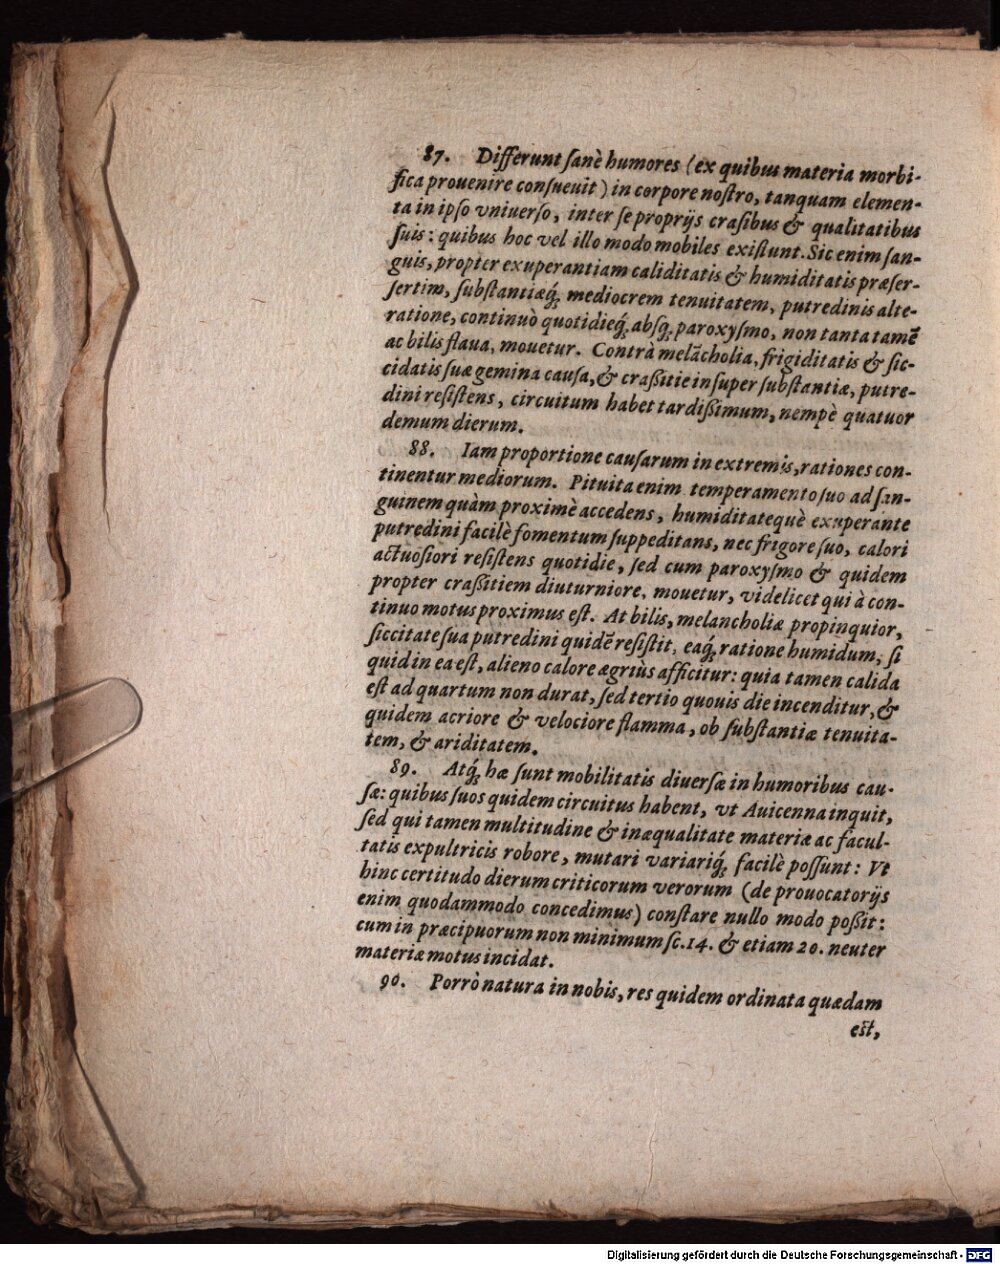 87. Differunt ſanè humores (ex quibus materia morbi-
fica prouenire conſueuit) in corpore noſtro, tanquam elemen-
ta in ipſo vniuerſo, inter ſe proprijs craſibus & qualitatibus
ſuis: quibus hoc vel illo modo mobiles exiſtunt. Sic enim ſan-
guis, propter exuperantiam caliditatis & humiditatis præſer-
ſertim, ſubſtantiæq́; mediocrem tenuitatem, putredinis alte-
ratione, continuò quotidieq́; abſq; paroxyſmo, non tanta tamẽ
ac bilis flaua, mouetur. Contrà melãcholia, frigiditatis & ſic-
cidatis ſuæ gemina cauſa, & craßitie inſuper ſubſtantiæ, putre-
dini reſiſtens, circuitum habet tardißimum, nempè quatuor
demum dierum.
88. Iam proportione cauſarum in extremis, rationes con-
tinentur mediorum. Pituita enim temperamento ſuo ad ſan-
guinem quàm proximè accedens, humiditatequè exuperante
putredini facilè fomentum ſuppeditans, nec frigore ſuo, calori
actuoſiori reſiſtens quotidie, ſed cum paroxyſmo & quidem
propter craßitiem diuturniore, mouetur, videlicet qui à con-
tinuo motus proximus eſt. At bilis, melancholiæ propinquior,
ſiccitate ſua putredini quidẽ reſiſtit, eaq́; ratione humidum, ſi
quid in ea eſt, alieno calore ægriùs afficitur: quia tamen calida
eſt ad quartum non durat, ſed tertio quouis die incenditur, &
quidem acriore & velociore flamma, ob ſubſtantiæ tenuita-
tem, & ariditatem.
89. Atq́; hæ ſunt mobilitatis diuerſæ in humoribus cau-
ſæ: quibus ſuos quidem circuitus habent, vt Auicenna inquit,
ſed qui tamen multitudine & inæqualitate materiæ ac facul-
tatis expultricis robore, mutari variariq́; facilè poſſunt: Vt
hinc certitudo dierum criticorum verorum (de prouocatorijs
enim quodammodo concedimus) conſtare nullo modo poßit:
cum in præcipuorum non minimum ſc. 14. & etiam 20. neuter
materiæ motus incidat.
90. Porrò natura in nobis, res quidem ordinata quædam
eſt,
Digitalisierung gefördert durch die Deutsche Forschungsgemeinschaft - DFG